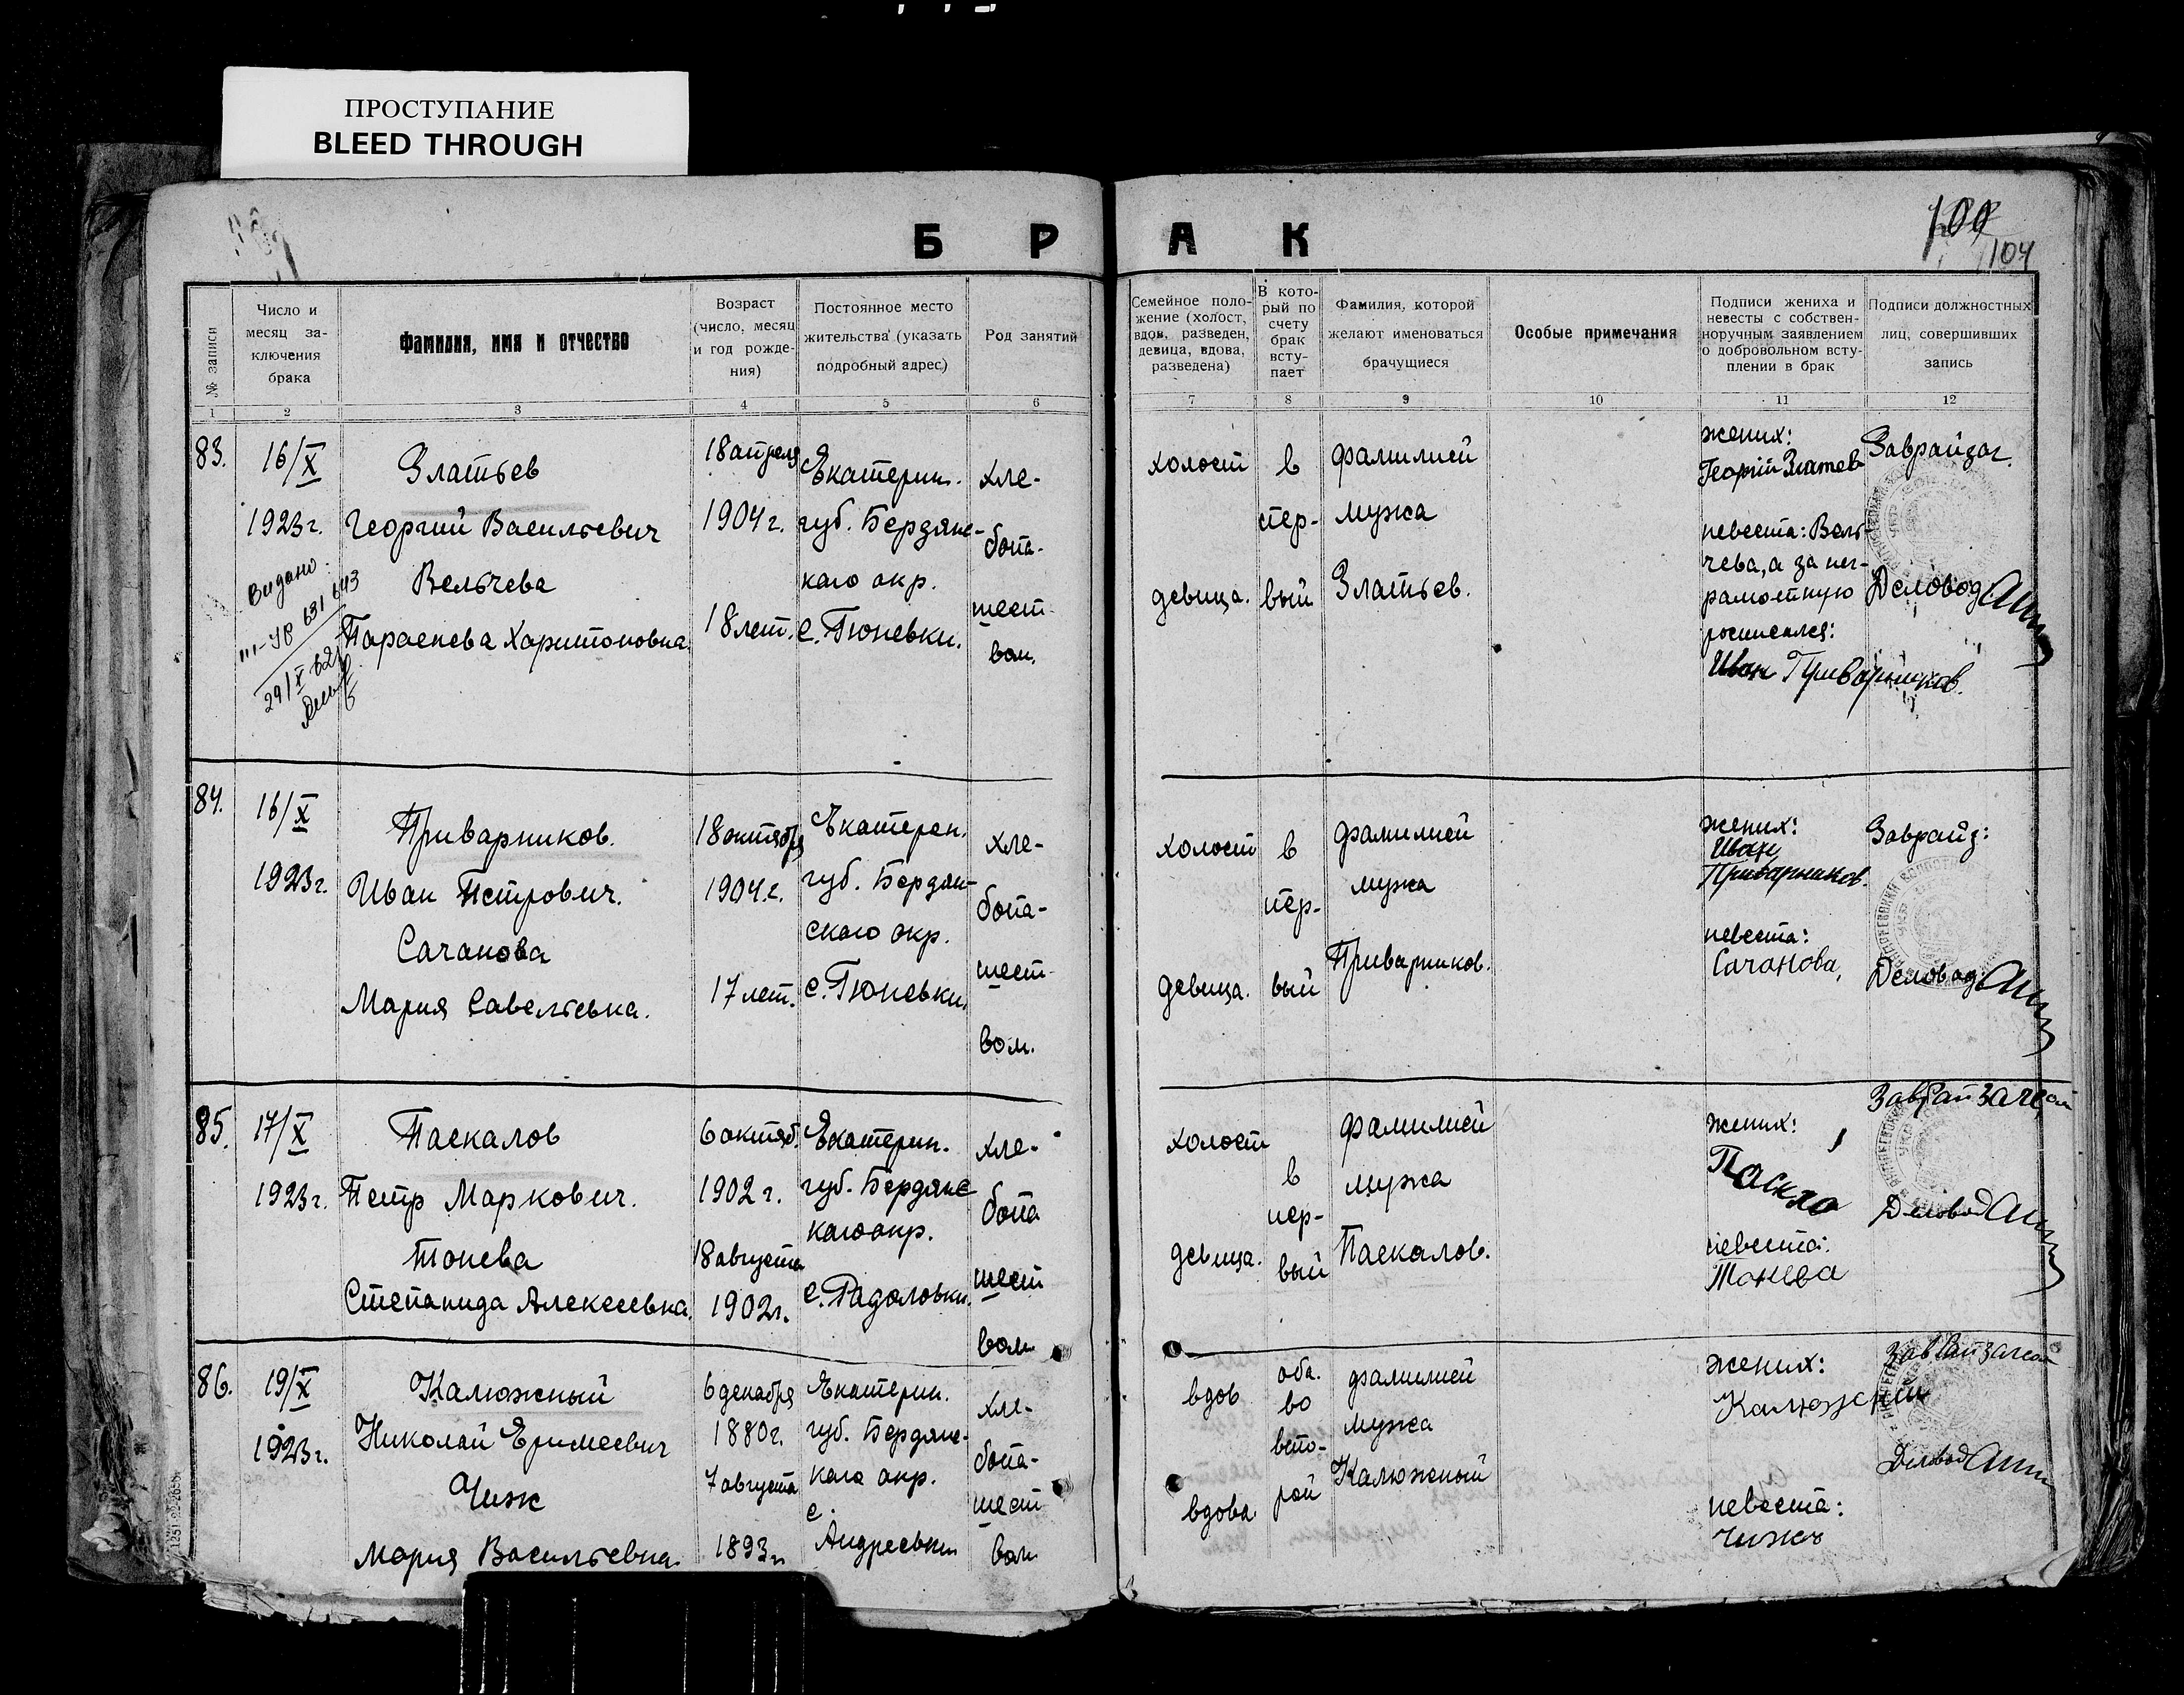 ПРОСТУПАНИЕ
BLEED THROUGH
Б Р А К
100
104
№ записи
Число и
месяц за-
ключения
брака
Фамилия, имя и отчество
Возраст
(число, месяц
и год рожде-
ния)
Постоянное место
жительства (указать
подробный адрес)
Род занятий
Семейное поло-
жение (холост,
вдов, разведен,
девица, вдова,
разведена)
В кото-
рый по
счету
брак
всту-
пает
Фамилия, которой
желают именоваться
брачущиеся
Особые примечания
Подписи жениха и
невесты с собствен-
норучным заявлением
о добровольном всту-
плении в брак
Подписи должностных
лиц, совершивших
запись
1 2 3 4 5 6 7 8 9 10 11 12
83.
16/X
1923 г.
Видано:
III-ЧР 631643
29/X-62
Златьев
Георгий Васильевич
Вельчева
Парасцева Харитоновна.
18 апреля
1904 г.
18 лет.
Екатерин.
губ. Бердянс-
каго окр.
с. Гюневки.
хле-
бопа-
шест
вом.
холост
девица.
в
пер-
вый
фамилией
мужа
Златьев.
жених:
Георгій Златев
невеста: Вель-
чева, а за нег-
рамотную
росписался:
Иван Приварников.
Заврайзаг.
Деловод
84.
16/X
1923 г.
Приварников.
Иван Петрович.
Сачанова
Мария Савельевна.
18 октября
1904 г.
17 лет.
Екатерен.
губ. Бердян-
скаго окр.
с. Гюневки.
хле-
бопа-
шест-
вом.
холост
девица.
в
пер-
вый
фамилией
мужа
Приварников.
жених:
Иван
Приварников.
невеста:
Сачанова,
Заврайз:
Деловод
85.
17/X
1923 г.
Паскалов
Петр Маркович.
Тонева
Степанида Алексеевна.
6 октяб.
1902 г.
18 августа
1902 г.
Екатерин.
губ. Бердянс
каго окр.
с. Радоловки.
хле-
бопа
шест
вом
холост
девица.
в
пер-
вый
фамилией
мужа
Паскалов.
жених:
невеста:
Тонева
Деловод
86.
19/X
1923 г.
Калюжный
Николай Еримеевич
Чиж
Мария Васильевна.
6 декабря
1880 г.
7 августа
1893 г.
Екатерин.
губ. Бердянс-
каго окр.
с.
Андреевки
хле-
бопа-
шест
вом
вдов
вдова
оба.
во
вто-
рой
фамилией
мужа
Калюжный
жених:
Калюжний
невеста:
Чижъ
Деловод